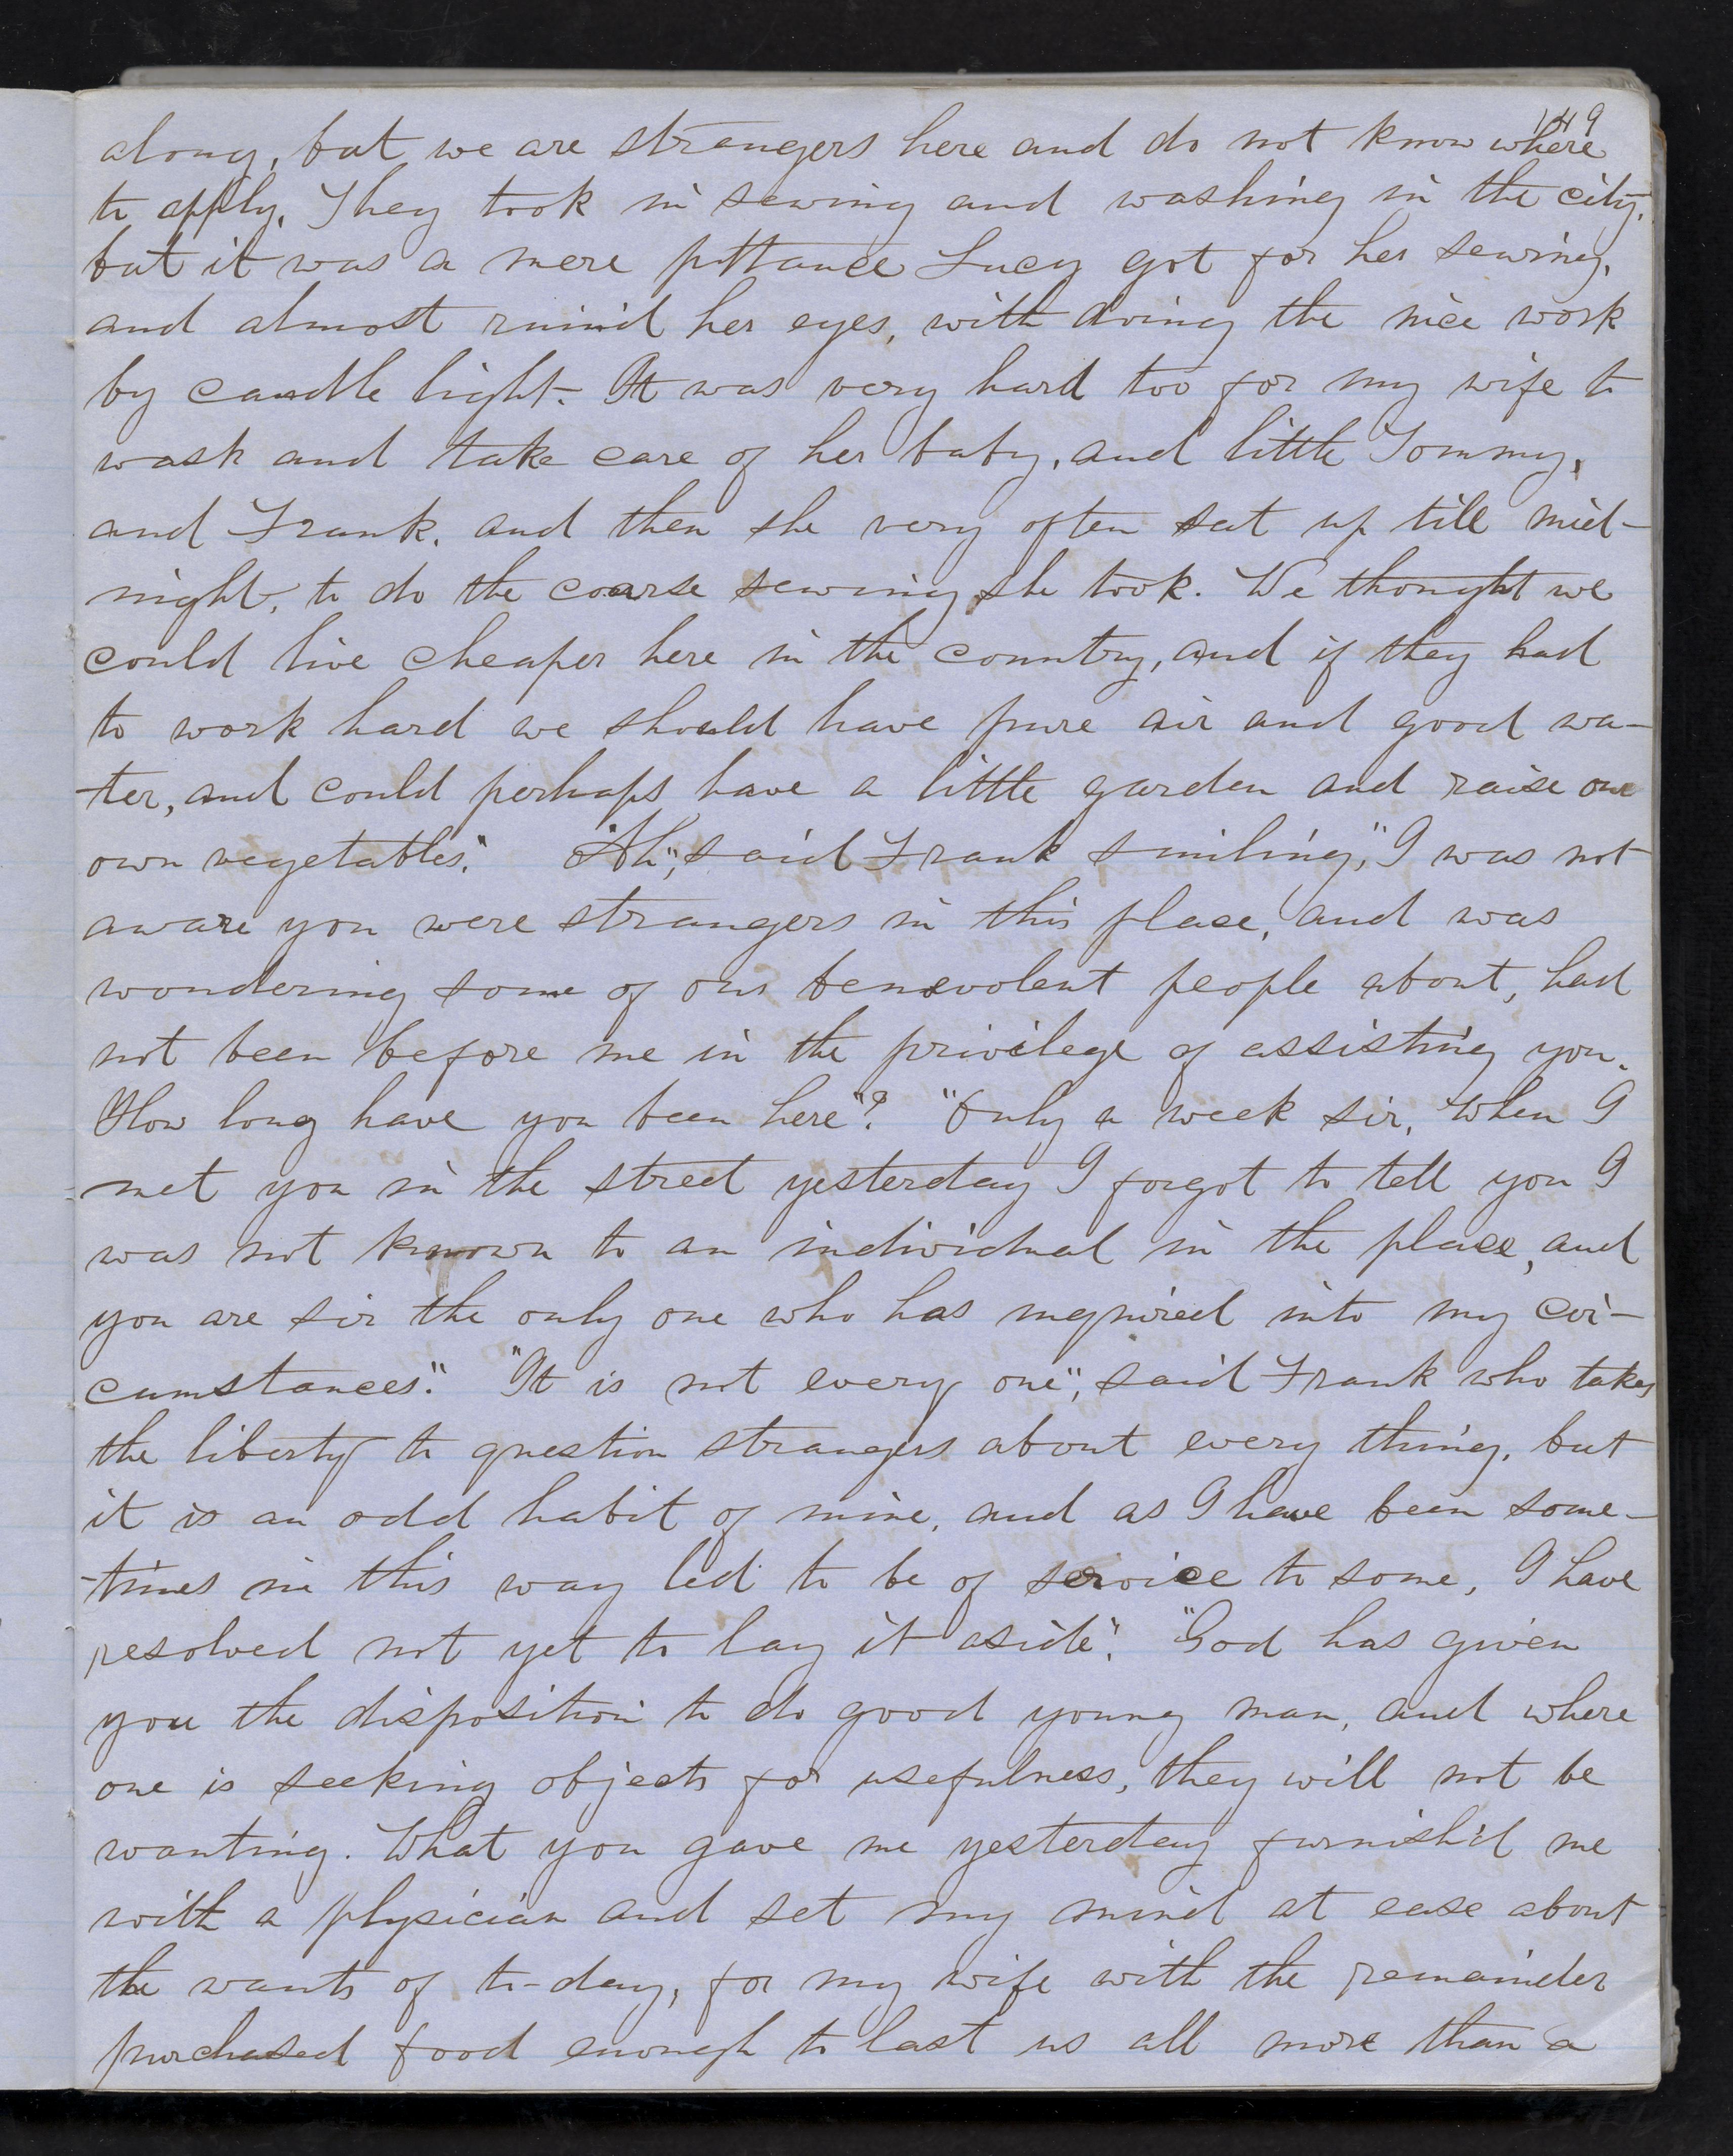 149
along, but we are strangers here and do not know where
to apply. They took in sewing and washing in the city,
but it was a mere pittance Lucy got for her sewing,
and almost ruin'd her eyes, with doing the nice work
by candle light. It was very hard too for my wife to
wash and take care of her baby, and little Tommy,
and Frank, and then she very often sat up till mid-
night, to do the coarse sewing she took. We thought we
could live cheaper here in the country, and if they had
to work hard we should have pure air and good wa-
-ter, and could perhaps have a little garden and raise our
own vegetables." "Ah", said Frank smiling, "I was not
aware you were strangers in this place, and was
wondering some of our benevolent people about, had
not been before me in the privilege of assisting you.
How long have you been here"? "Only a week sir, when I
met you in the street yesterday I forgot to tell you I
was not known to an individual in the place, and
you are sir the only one who has inquired into my cir-
cumstances." "It is not every one", said Frank who takes
the liberty to question strangers about every thing, but
it is an odd habit of mine, and as I have been some-
-times in this way led to be of service to some, I have
resolved not yet to lay it aside." "God has given
you the disposition to do good young man, and where
one is seeking objects for usefulness, they will not be
wanting. What you gave me yesterday furnish'd me
with a physician and set my mind at ease about
the wants of to-day, for my wife with the remainder
purchased food enough to last us all more than a